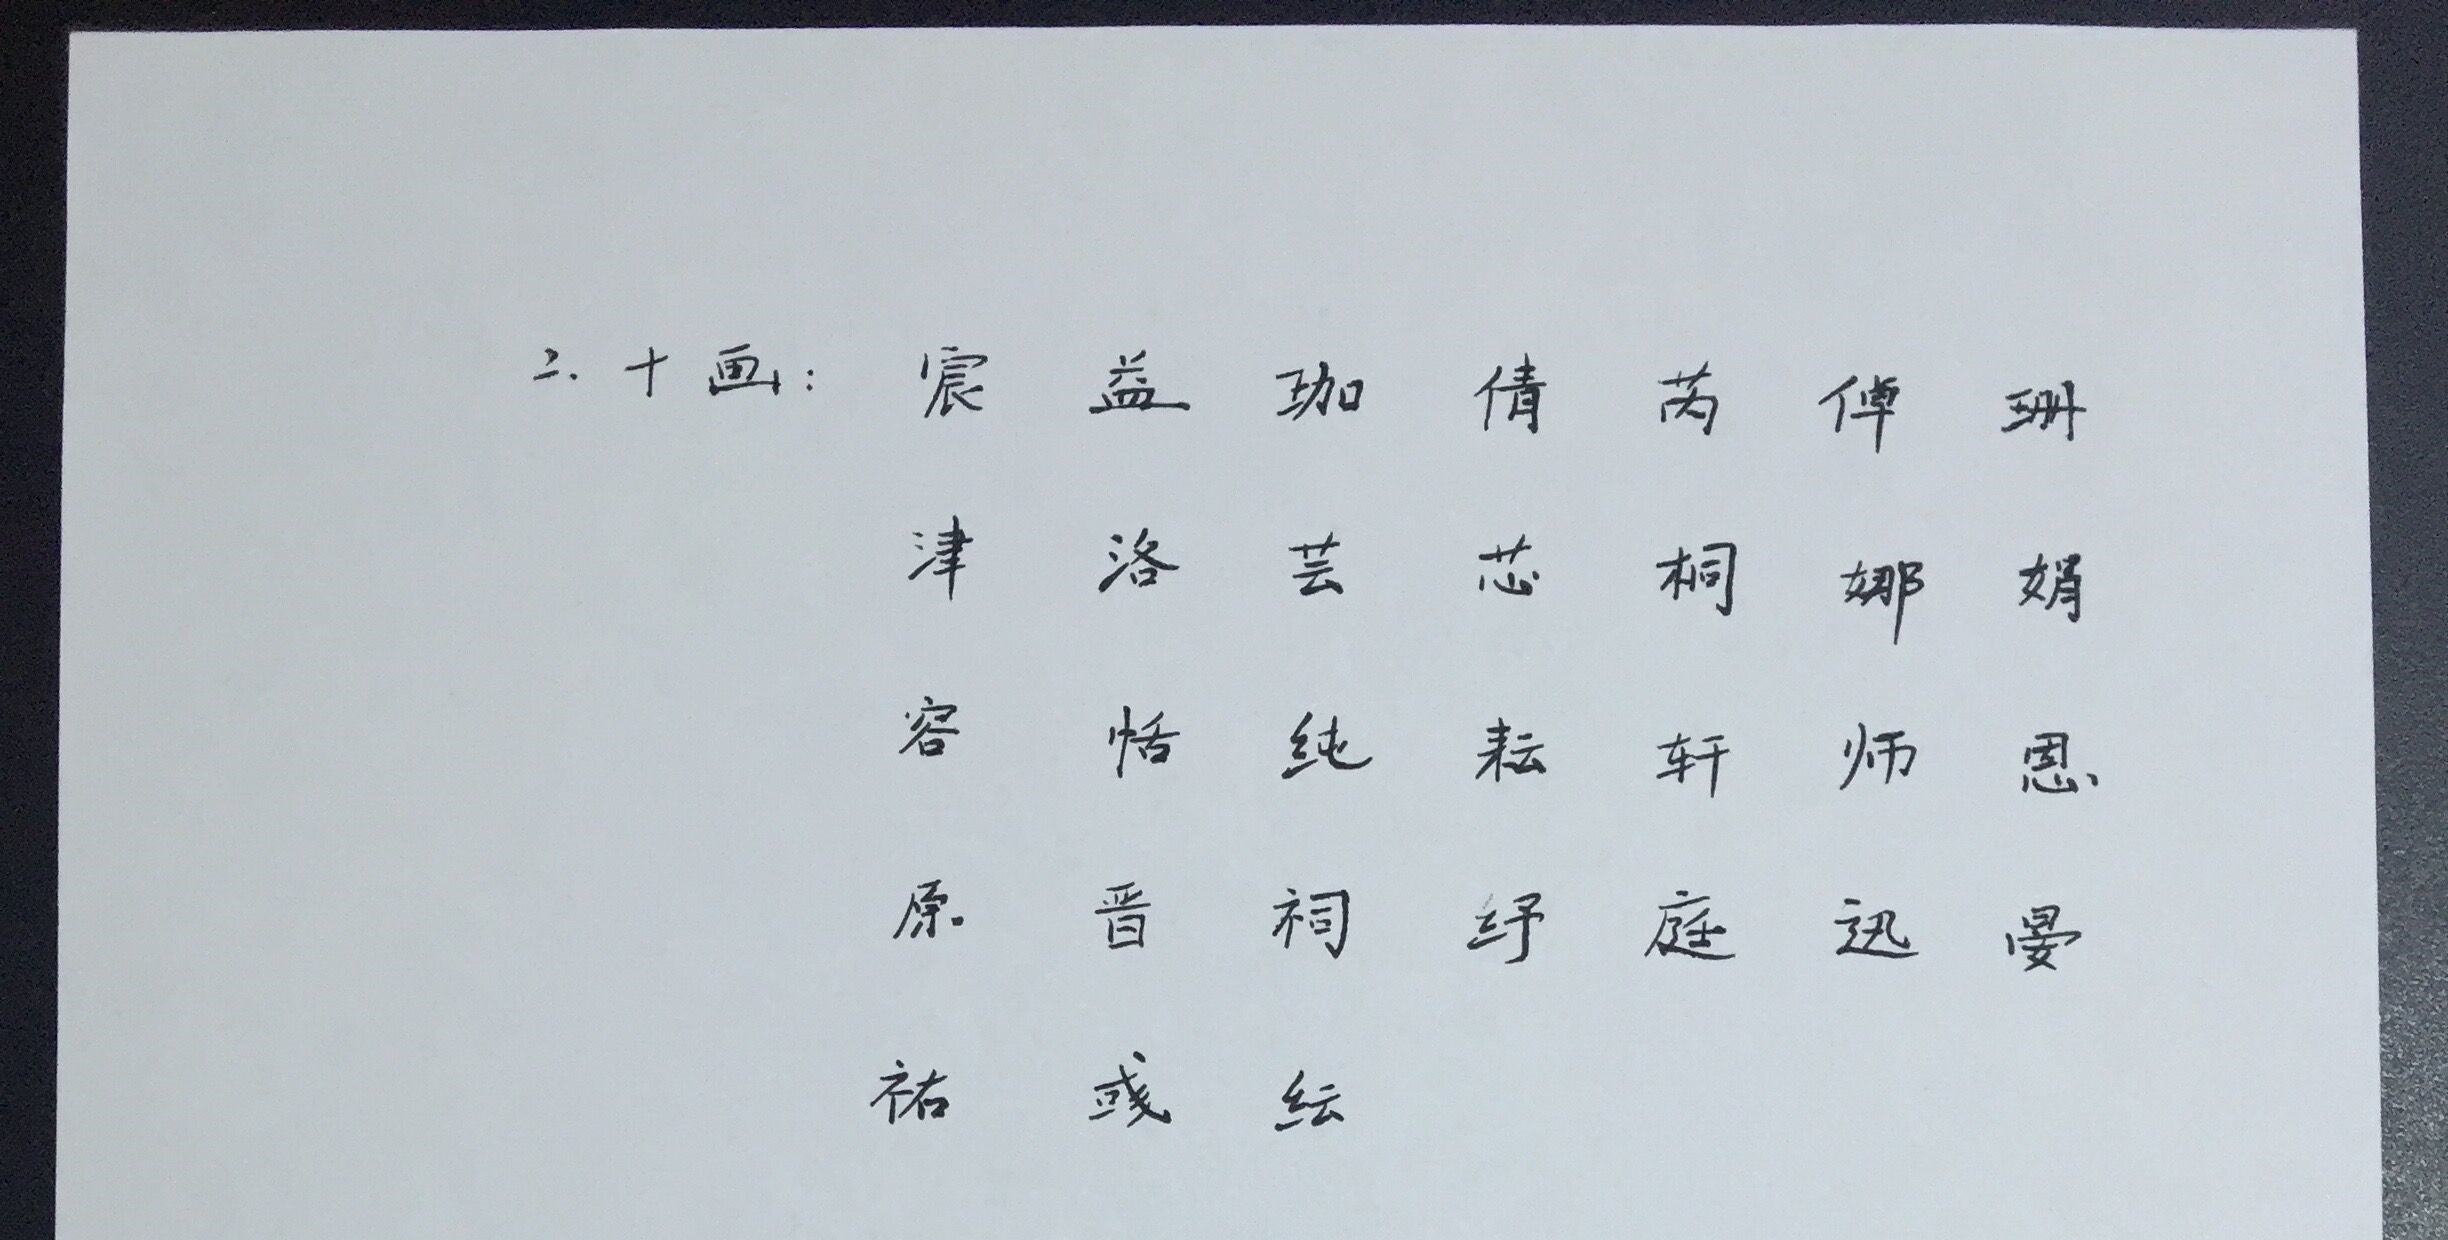 二.十画：宸 益 珈 倩 芮 倬 珊
津 洛 芸 芯 桐 娜 娟
容 恬 纯 耘 轩 师 恩
原 晋 祠 纾 庭 迅 晏
祐 彧 纭